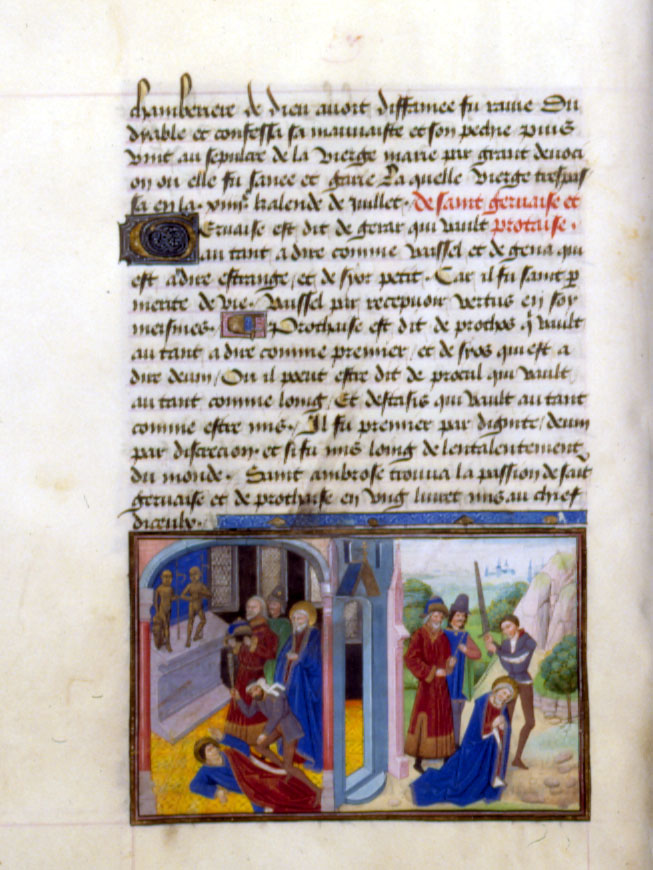 chamberiere de dieu auoit diffamee fu rauie Du
dyable et confessa sa mauuaiste et son pechie puis
vint au sepulcre de la vierge marie par grant deuoci
on ou elle fu sanee et garie La quelle vierge trespas
sa en la xiiiie kalende de Juillet. de saint geruaise et
Geruaise est dit de gerar qui vault protaise.
au tant a dire comme vaissel et de gena qui
est a dire estrange, et de syor petit. Car il fu saint p
merite de vie. vaissel par recepuoir vertus en soy
meismes. Prothaise est dit de prothos q vault
au tant a dire comme premier, et de syos qui est a
dire deuin, Ou il poeut estre dit de procul qui vault
au tant comme loing, Et destasis qui vault au tant
comme estre mis. Il fu premier par dignite, deuin
par discrecion et si fu mis loing de lentalentement
du monde. Saint ambrose trouua la passion de sait
geruaise et de prothaise en vng liuret mis au chief
diceulx.